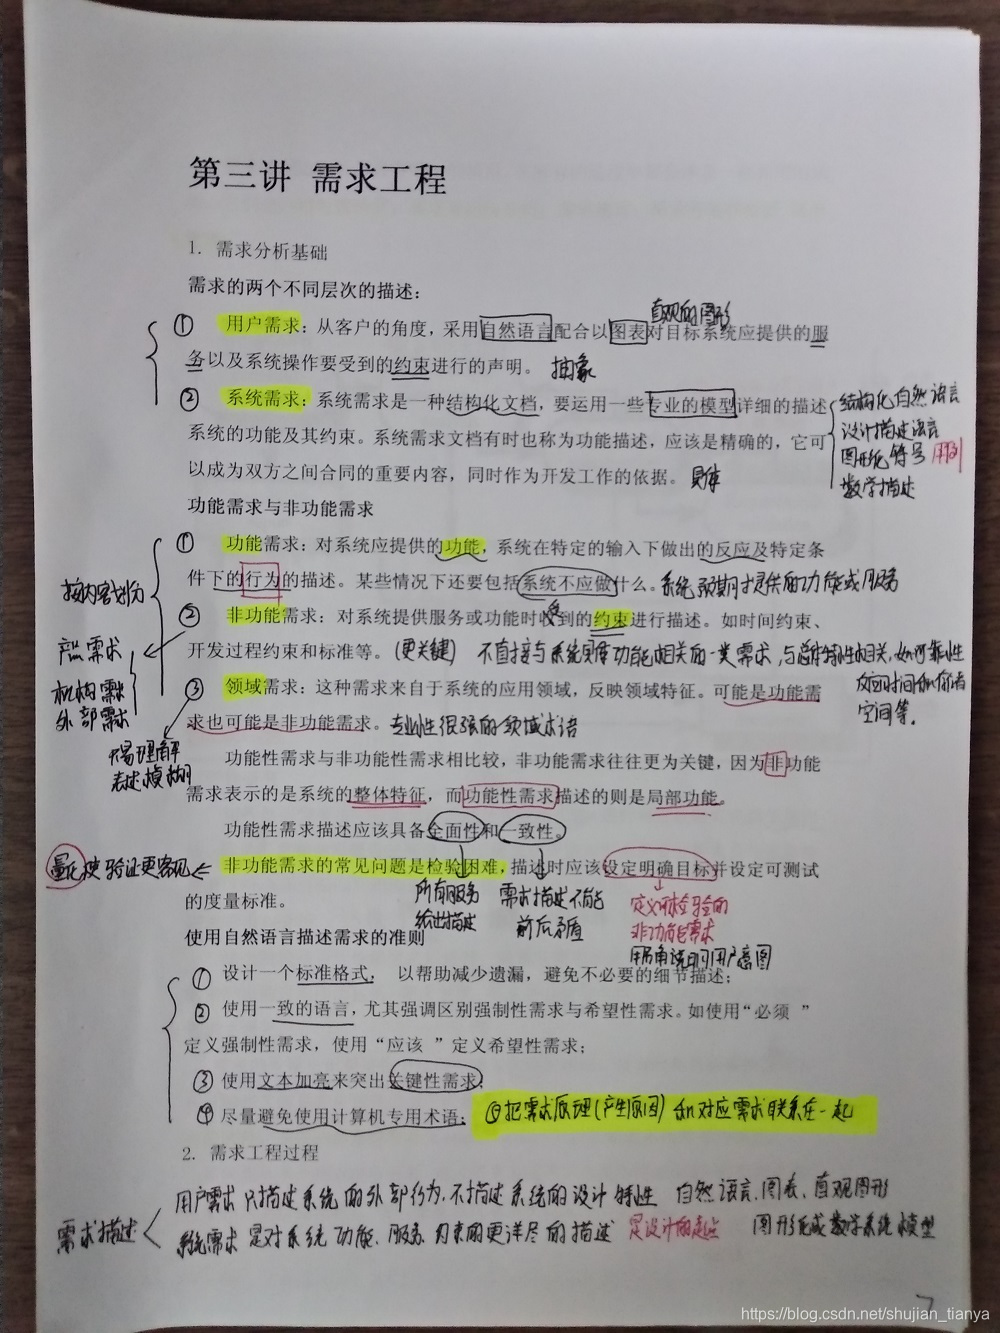 第三讲 需求工程
1. 需求分析基础
需求的两个不同层次的描述：
直观的图形
① 用户需求：从客户的角度，采用自然语言配合以图表对目标系统应提供的服
务以及系统操作要受到的约束进行的声明。 抽象
② 系统需求：系统需求是一种结构化文档，要运用一些专业的模型详细的描述
结构化自然语言
设计描述语言
图形化符号 用例
数学描述
系统的功能及其约束。系统需求文档有时也称为功能描述，应该是精确的，它可
以成为双方之间合同的重要内容，同时作为开发工作的依据。 具体
功能需求与非功能需求
按内容划分
① 功能需求：对系统应提供的功能，系统在特定的输入下做出的反应及特定条
件下的行为的描述。某些情况下还要包括系统不应做什么。系统预期提供的功能或服务
② 非功能需求：对系统提供服务或功能时收到的约束进行描述。如时间约束、
受
产品需求
机构需求
外部需求
开发过程约束和标准等。（更关键） 不直接与系统具体功能相关的一类需求，与总体特性相关，如可靠性
反应时间和储存
空间等。
③ 领域需求：这种需求来自于系统的应用领域，反映领域特征。可能是功能需
求也可能是非功能需求。 专业性很强的领域术语
不易理解
表述模糊
功能性需求与非功能性需求相比较，非功能需求往往更为关键，因为非功能
需求表示的是系统的整体特征，而功能性需求描述的则是局部功能。
功能性需求描述应该具备全面性和一致性。
量化使验证更客观
非功能需求的常见问题是检验困难，描述时应该设定明确目标并设定可测试
的度量标准。
所有服务
给出描述
需求描述不能
前后矛盾
定义可检验的
非功能需求
用户意图
使用自然语言描述需求的准则
① 设计一个标准格式， 以帮助减少遗漏，避免不必要的细节描述；
② 使用一致的语言，尤其强调区别强制性需求与希望性需求。如使用“必须 ”
定义强制性需求，使用“应该 ”定义希望性需求；
③ 使用文本加亮来突出关键性需求；
④ 尽量避免使用计算机专用术语； ⑤把需求原理（产生原因）和对应需求联系在一起
2. 需求工程过程
需求描述
用户需求 只描述系统的外部行为，不描述系统的设计特性 自然语言、图表、直观图形
系统需求 是对系统功能、服务、约束的更详尽的描述 是设计的起点 图形化或数学系统模型
7
https://blog.csdn.net/shujian_tianya